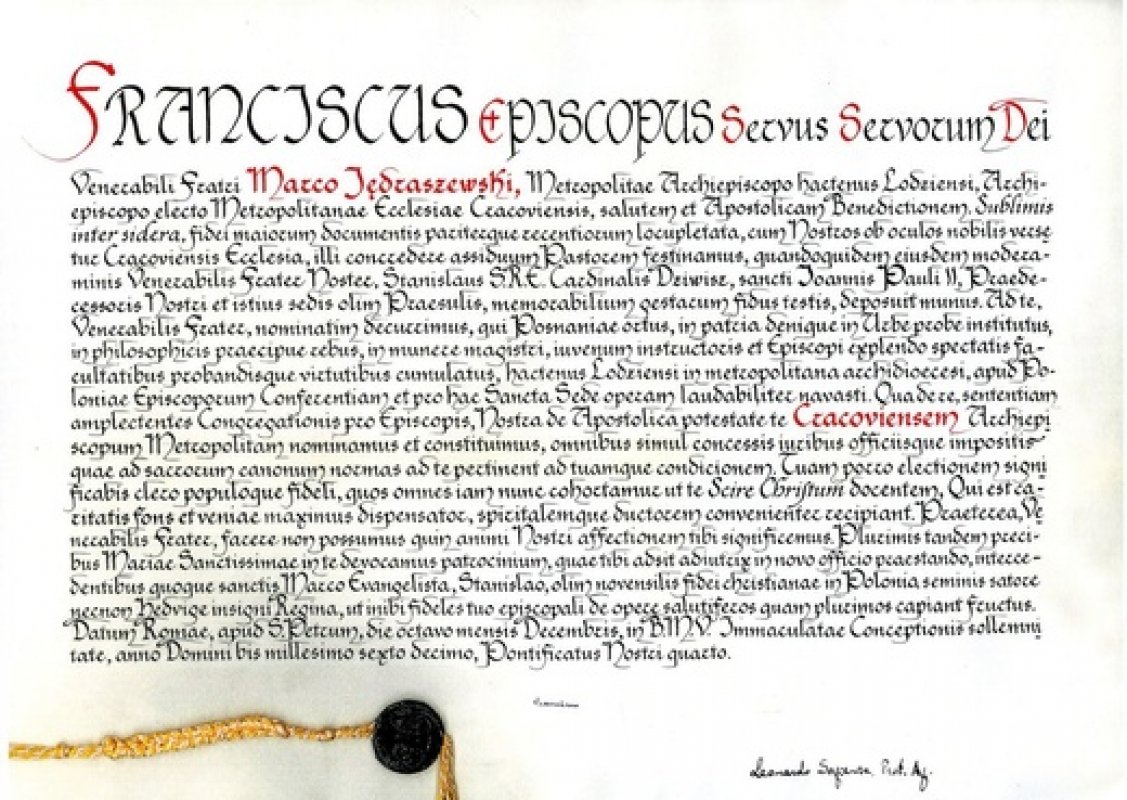 FRANCISCUS EPISCOPUS Servus Servorum Dei
Venerabili Fratri Marco Jędraszewski, Metropolitae Archiepiscopo hactenus Lodziensi, Archi-
episcopo electo Metropolitanae Ecclesiae Cracoviensis, salutem et Apostolicam Benedictionem. Sublimis
inter sidera, fidei maiorum documentis pariterque recentiorum locupletata, cum Nostros ob oculos nobilis verse
tur Cracoviensis Ecclesia, illi concredere assiduum Pastorem festinamus, quandoquidem eiusdem modera-
minis Venerabilis Frater Noster, Stanislaus S.R.E. Cardinalis Dziwisz, sancti Joannis Pauli II, Praede-
cessoris Nostri et istius sedis olim Praesulis, memorabilium gestarum fidus testis, deposuit munus. Ad te,
Venerabilis Frater, nominatim decurrimus, qui Posnaniae ortus, in patria denique in Urbe probe institutus,
in philosophicis praecipue rebus, in munere magistri, iuvenum instructoris et Episcopi explendo spectatis fa-
cultatibus probandisque virtutibus cumulatus, hactenus Lodziensi in metropolitana archidioecesi, apud Po-
loniae Episcoporum Conferentiam et pro hac Sancta Sede operam laudabiliter navasti. Qua de re, sententiam
amplectentes Congregationis pro Episcopis, Nostra de Apostolica potestate te Cracoviensem Archiepi
scopum Metropolitam nominamus et constituimus, omnibus simul concessis iuribus officiisque impositis
quae ad sacrorum canonum normas ad te pertinent ad tuamque condicionem. Tuam porro electionem signi
ficabis clero populoque fideli, quos omnes iam nunc cohortamur ut te Scire Christum docentem, Qui est ca-
ritatis fons et veniae maximus dispensator, spiritalemque ductorem convenienter recipiant. Praeterea, Ve
nerabilis Frater, facere non possumus quin animi Nostri affectionem tibi significemus. Plurimis tandem preci-
bus Mariae Sanctissimae in te devocamus patrocinium, quae tibi adsit adiutrix in novo officio praestando, interce-
dentibus quoque sanctis Marco Evangelista, Stanislao, olim novensilis fidei christianae in Polonia seminis satore
necnon Hedvige insigni Regina, ut inibi fideles tuo episcopali de opere salutiferos quam plurimos capiant fructus.
Datum Romae, apud S. Petrum, die octavo mensis Decembris, in B.M.V. Immaculatae Conceptionis sollemni
tate, anno Domini bis millesimo sexto decimo, Pontificatus Nostri quarto.
Franciscus
Leonardo Sapienza, Prot. Ap.